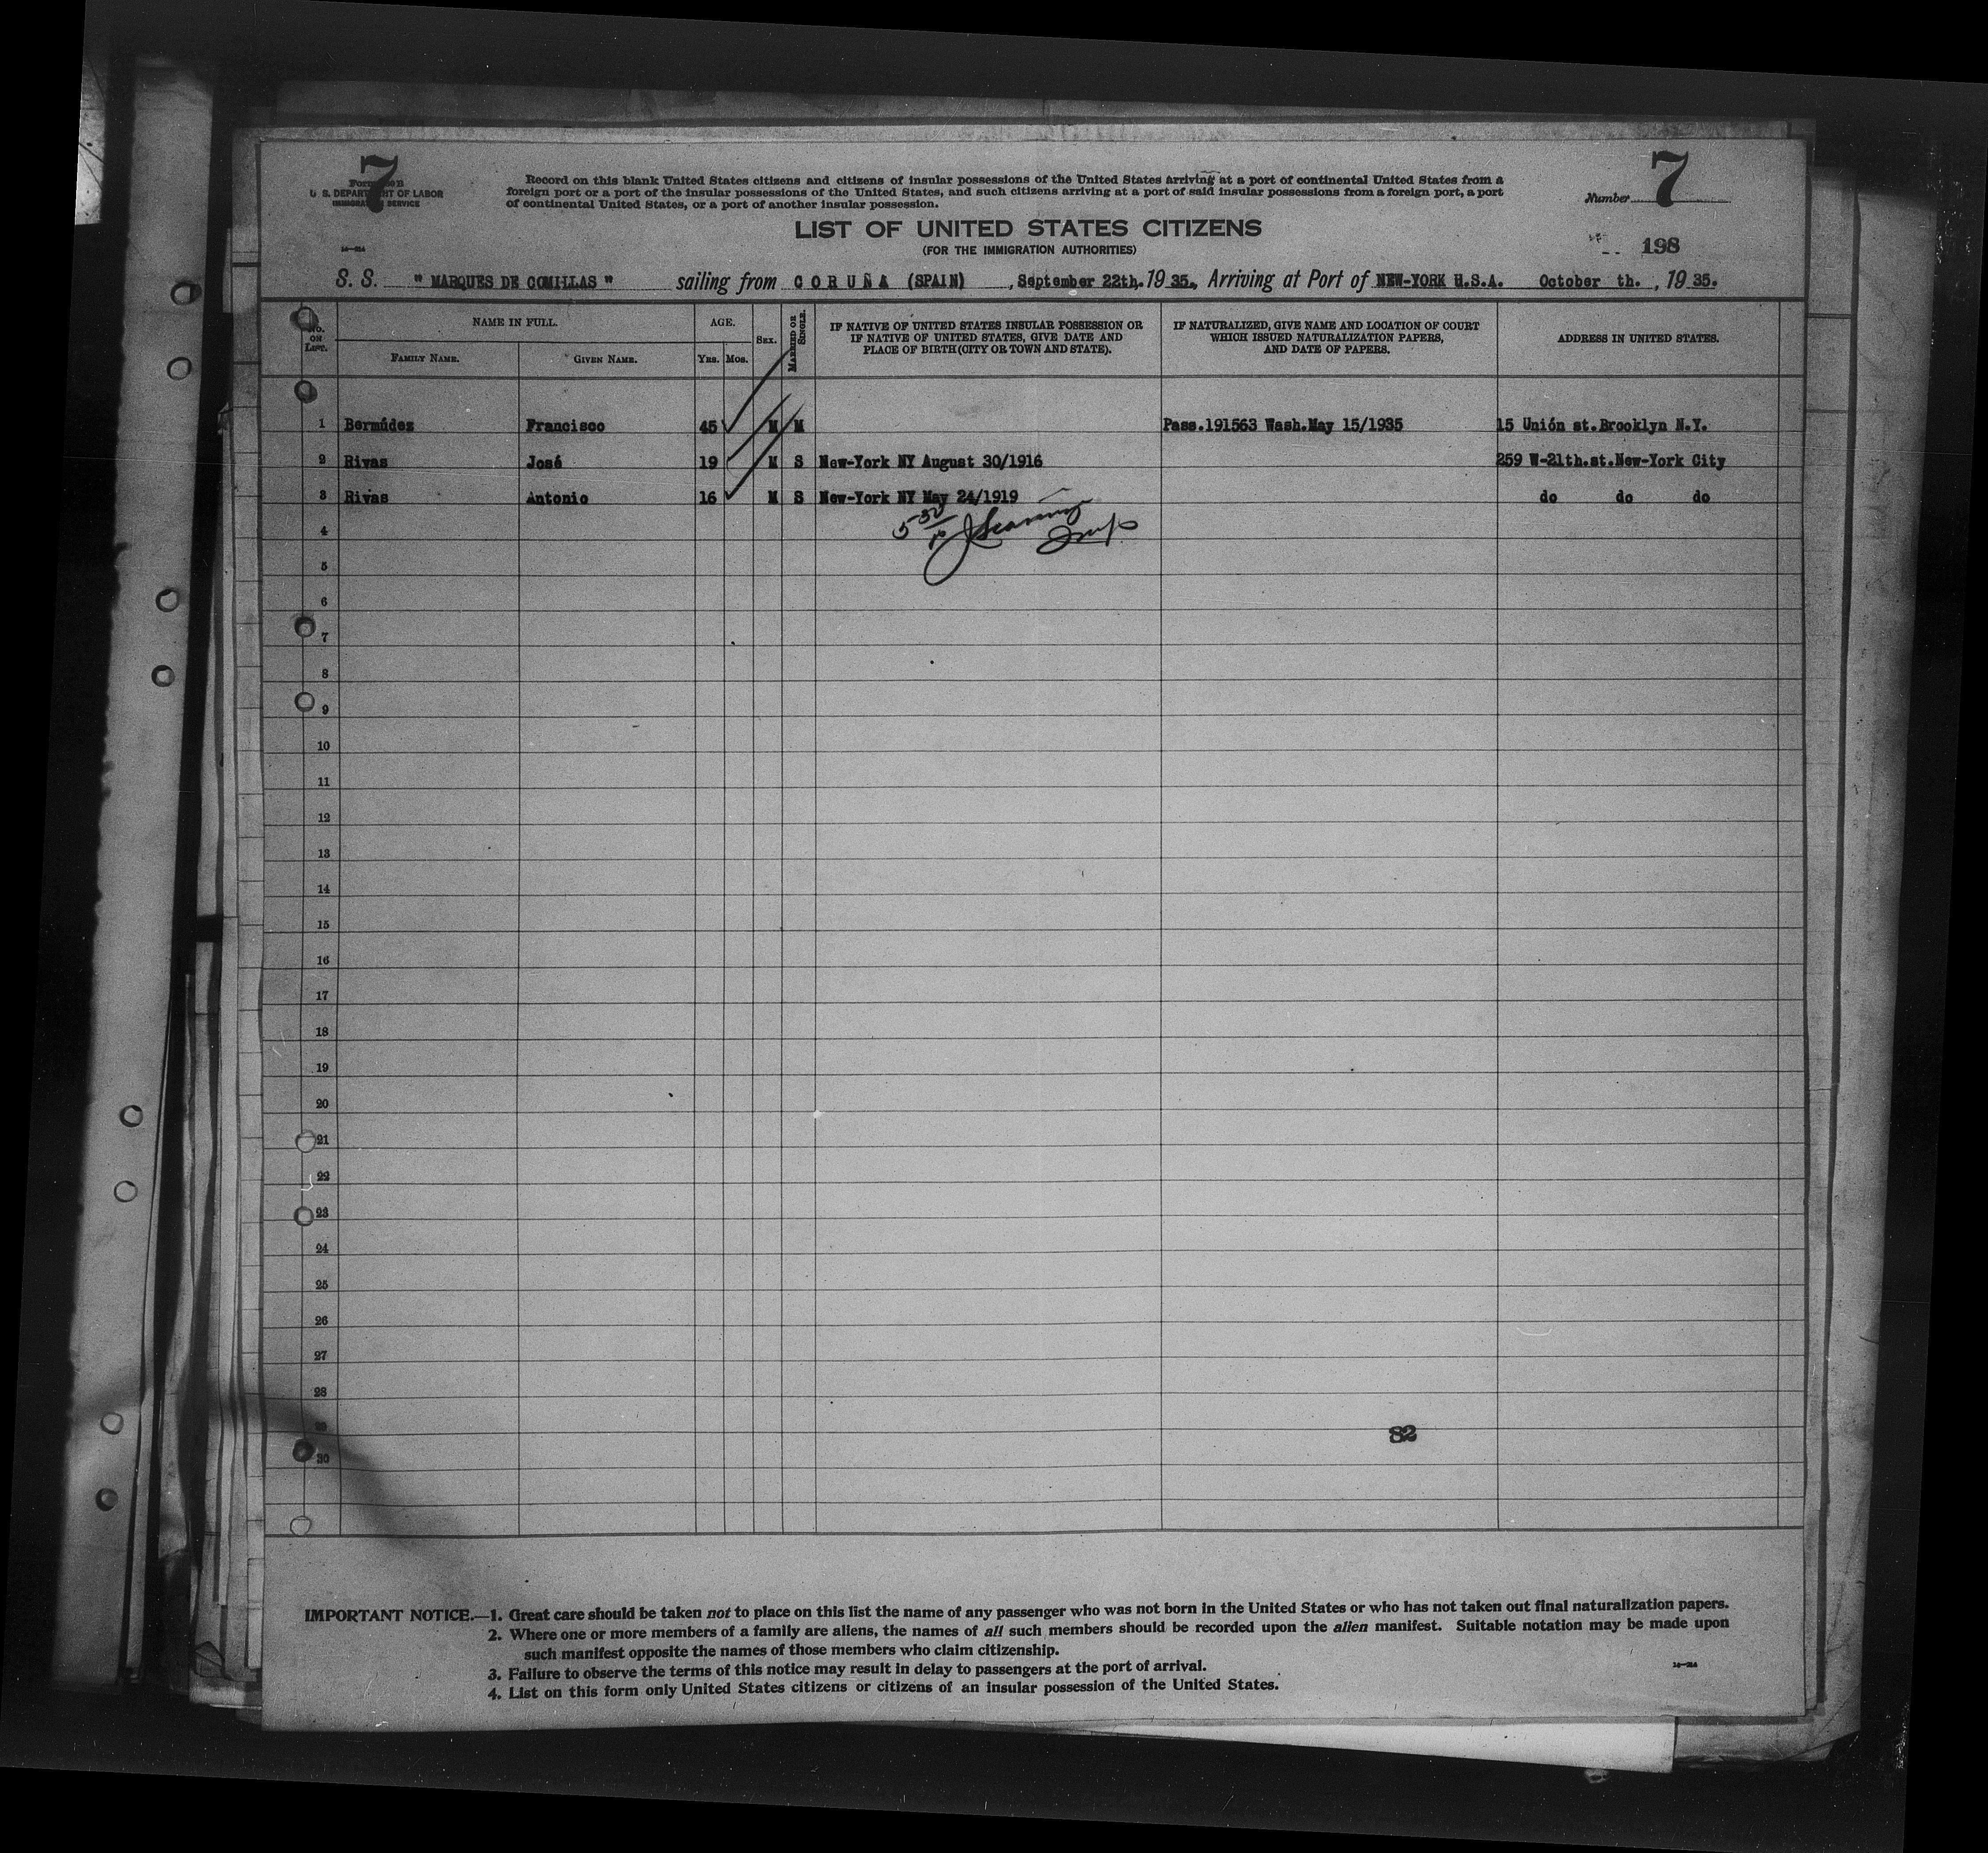 7
7
Form 630 B
U. S. DEPARTMENT OF LABOR
IMMIGRATION SERVICE
Record on this blank United States citizens and citizens of insular possessions of the United States arriving at a port of continental United States from a
foreign port or a port of the insular possessions of the United States, and such citizens arriving at a port of said insular possessions from a foreign port, a port
of continental United States, or a port of another insular possession.
Number
LIST OF UNITED STATES CITIZENS
(FOR THE IMMIGRATION AUTHORITIES)
198
S. S. " MARQUES DE COMILLAS " sailing from CORUÑA (SPAIN) , September 22th. 19 35., Arriving at Port of NEW-YORK U.S.A. October th. , 19 35.
No. ON LIST.
NAME IN FULL.
FAMILY NAME.
GIVEN NAME.
AGE.
YRS. MOS.
SEX.
MARRIED OR SINGLE.
IF NATIVE OF UNITED STATES INSULAR POSSESSION OR
IF NATIVE OF UNITED STATES, GIVE DATE AND
PLACE OF BIRTH (CITY OR TOWN AND STATE).
IF NATURALIZED, GIVE NAME AND LOCATION OF COURT
WHICH ISSUED NATURALIZATION PAPERS,
AND DATE OF PAPERS.
ADDRESS IN UNITED STATES.
1 Bermúdez Francisco 45 M M Pass.191563 Wash.May 15/1935 15 Unión st.Brooklyn N.Y.
2 Rivas José 19 M S New-York NY August 30/1916 259 W-21th.st.New-York City
3 Rivas Antonio 16 M S New-York NY May 24/1919 do do do
4
5
6
7
8
9
10
11
12
13
14
15
16
17
18
19
20
21
22
23
24
25
26
27
28
29
30
82
IMPORTANT NOTICE.—1. Great care should be taken not to place on this list the name of any passenger who was not born in the United States or who has not taken out final naturalization papers.
2. Where one or more members of a family are aliens, the names of all such members should be recorded upon the alien manifest. Suitable notation may be made upon
such manifest opposite the names of those members who claim citizenship.
3. Failure to observe the terms of this notice may result in delay to passengers at the port of arrival.
4. List on this form only United States citizens or citizens of an insular possession of the United States.